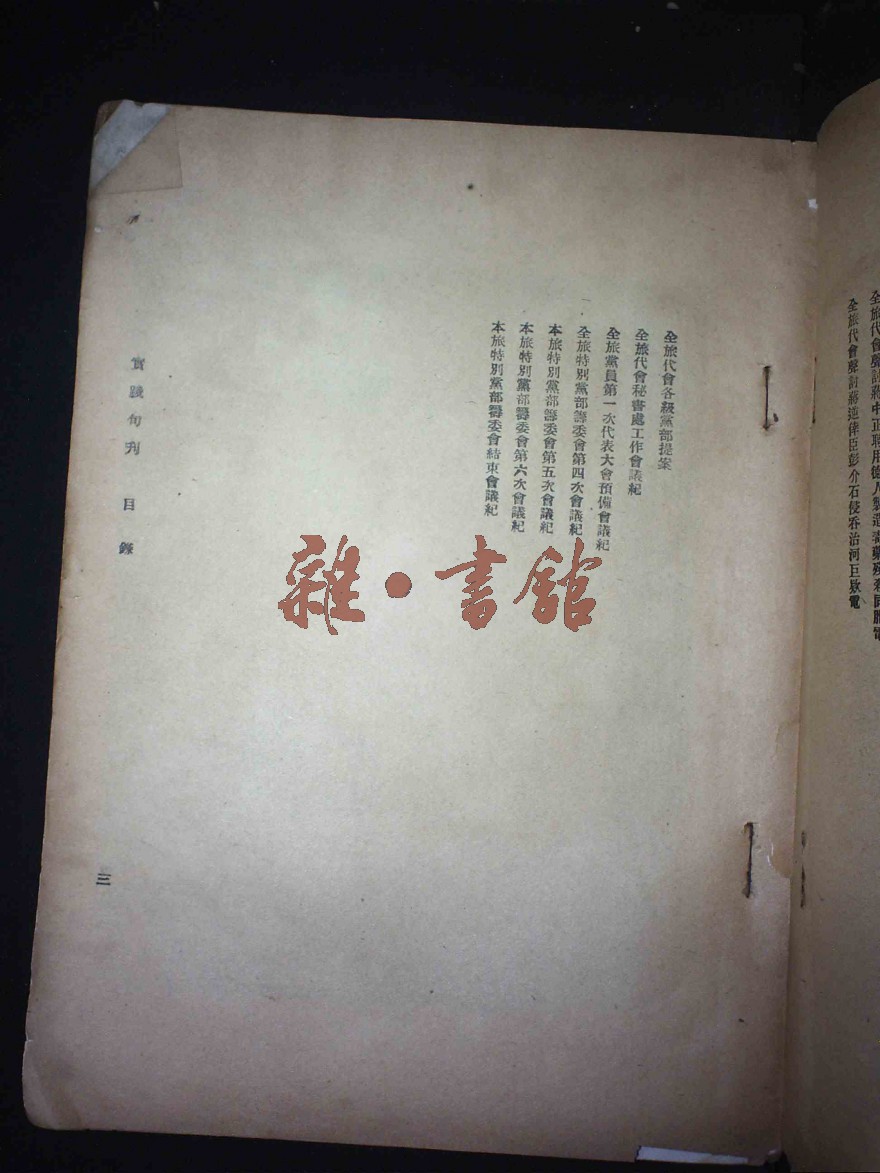 全旅代會聲討蔣中正聘用德人製造毒藥殘殺同胞電
全旅代會聲討蔣逆倖臣彭介石侵吞治河巨欵電
全旅代會各級黨部提案
全旅代會秘書處工作會議紀
全旅黨員第一次代表大會預備會議紀
全旅特別黨部籌委會第四次會議紀
本旅特別黨部籌委會第五次會議紀
本旅特別黨部籌委會第六次會議紀
本旅特別黨部籌委會結束會議紀
實踐旬刋 目錄
三
雜·書館